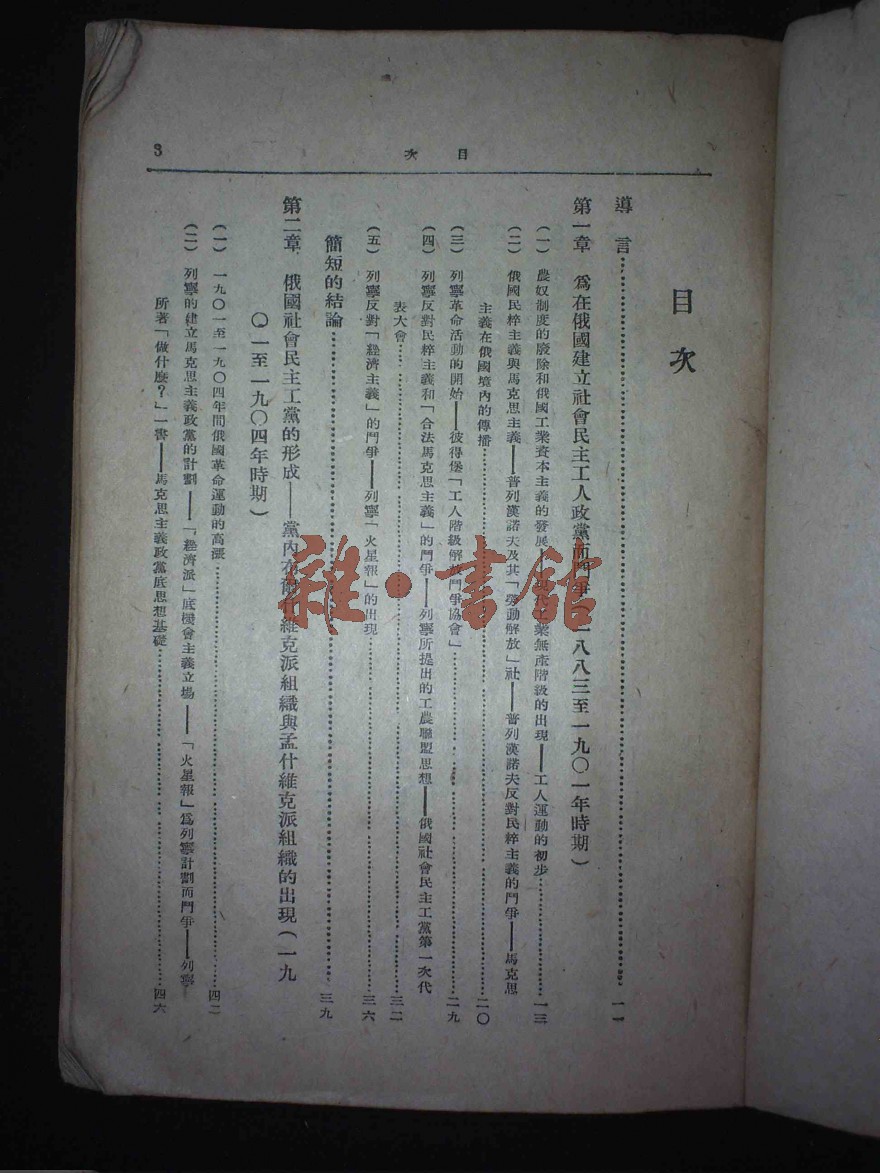 3
目次
目次
導言……一一
第一章 爲在俄國建立社會民主工人政黨而鬥爭(一八八三至一九〇一年時期)
(一) 農奴制度的廢除和俄國工業資本主義的發展——現代工業無產階級的出現——工人運動的初步……一三
(二) 俄國民粹主義與馬克思主義——普列漢諾夫及其「勞動解放」社——普列漢諾夫反對民粹主義的鬥爭——馬克思
主義在俄國境內的傳播……二〇
(三) 列寧革命活動的開始——彼得堡「工人階級解放鬥爭協會」……二九
(四) 列寧反對民粹主義和「合法馬克思主義」的鬥爭——列寧所提出的工農聯盟思想——俄國社會民主工黨第一次代
表大會……三二
(五) 列寧反對「經濟主義」的鬥爭——列寧「火星報」的出現……三六
簡短的結論……三九
第二章 俄國社會民主工黨的形成——黨內布爾什維克派組織與孟什維克派組織的出現(一九
〇一至一九〇四年時期)
(一) 一九〇一至一九〇四年間俄國革命運動的高漲……四二
(二) 列寧的建立馬克思主義政黨的計劃——「經濟派」底機會主義立場——「火星報」爲列寧計劃而鬥爭——列寧
所著「做什麼?」一書——馬克思主義政黨底思想基礎……四六
雜·書館